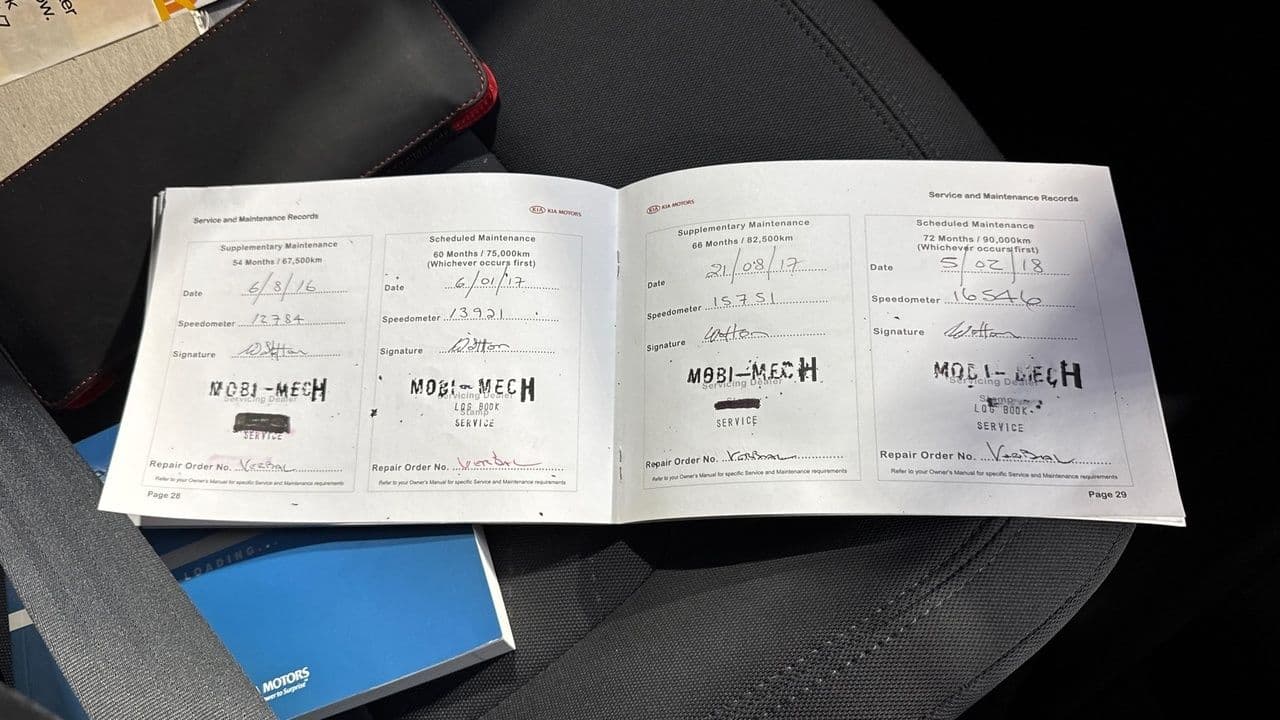 er
ow.
Service and Maintenance Records
KIA KIA MOTORS
Supplementary Maintenance
54 Months / 67,500km
Date 6/8/16
Speedometer 12784
Signature
MOBI-MECH
Servicing Dealer
SERVICE
Repair Order No. Verbal
Refer to your Owner's Manual for specific Service and Maintenance requirements
Page 28
Scheduled Maintenance
60 Months / 75,000km
(Whichever occurs first)
Date 6/01/17
Speedometer 13921
Signature
MOBI-MECH
Servicing Dealer
LOG BOOK
Stamp
SERVICE
Repair Order No. Verbal
Refer to your Owner's Manual for specific Service and Maintenance requirements
KIA KIA MOTORS
Service and Maintenance Records
Supplementary Maintenance
66 Months / 82,500km
Date 21/08/17
Speedometer 15751
Signature
MOBI-MECH
Servicing Dealer
SERVICE
Repair Order No. Verbal
Refer to your Owner's Manual for specific Service and Maintenance requirements
Scheduled Maintenance
72 Months / 90,000km
(Whichever occurs first)
Date 5/02/18
Speedometer 16546
Signature
MOBI-MECH
Servicing Dealer
Stamp
LOG BOOK
SERVICE
Repair Order No. Verbal
Refer to your Owner's Manual for specific Service and Maintenance requirements
Page 29
LOADING...
MOTORS
wer to Surprise